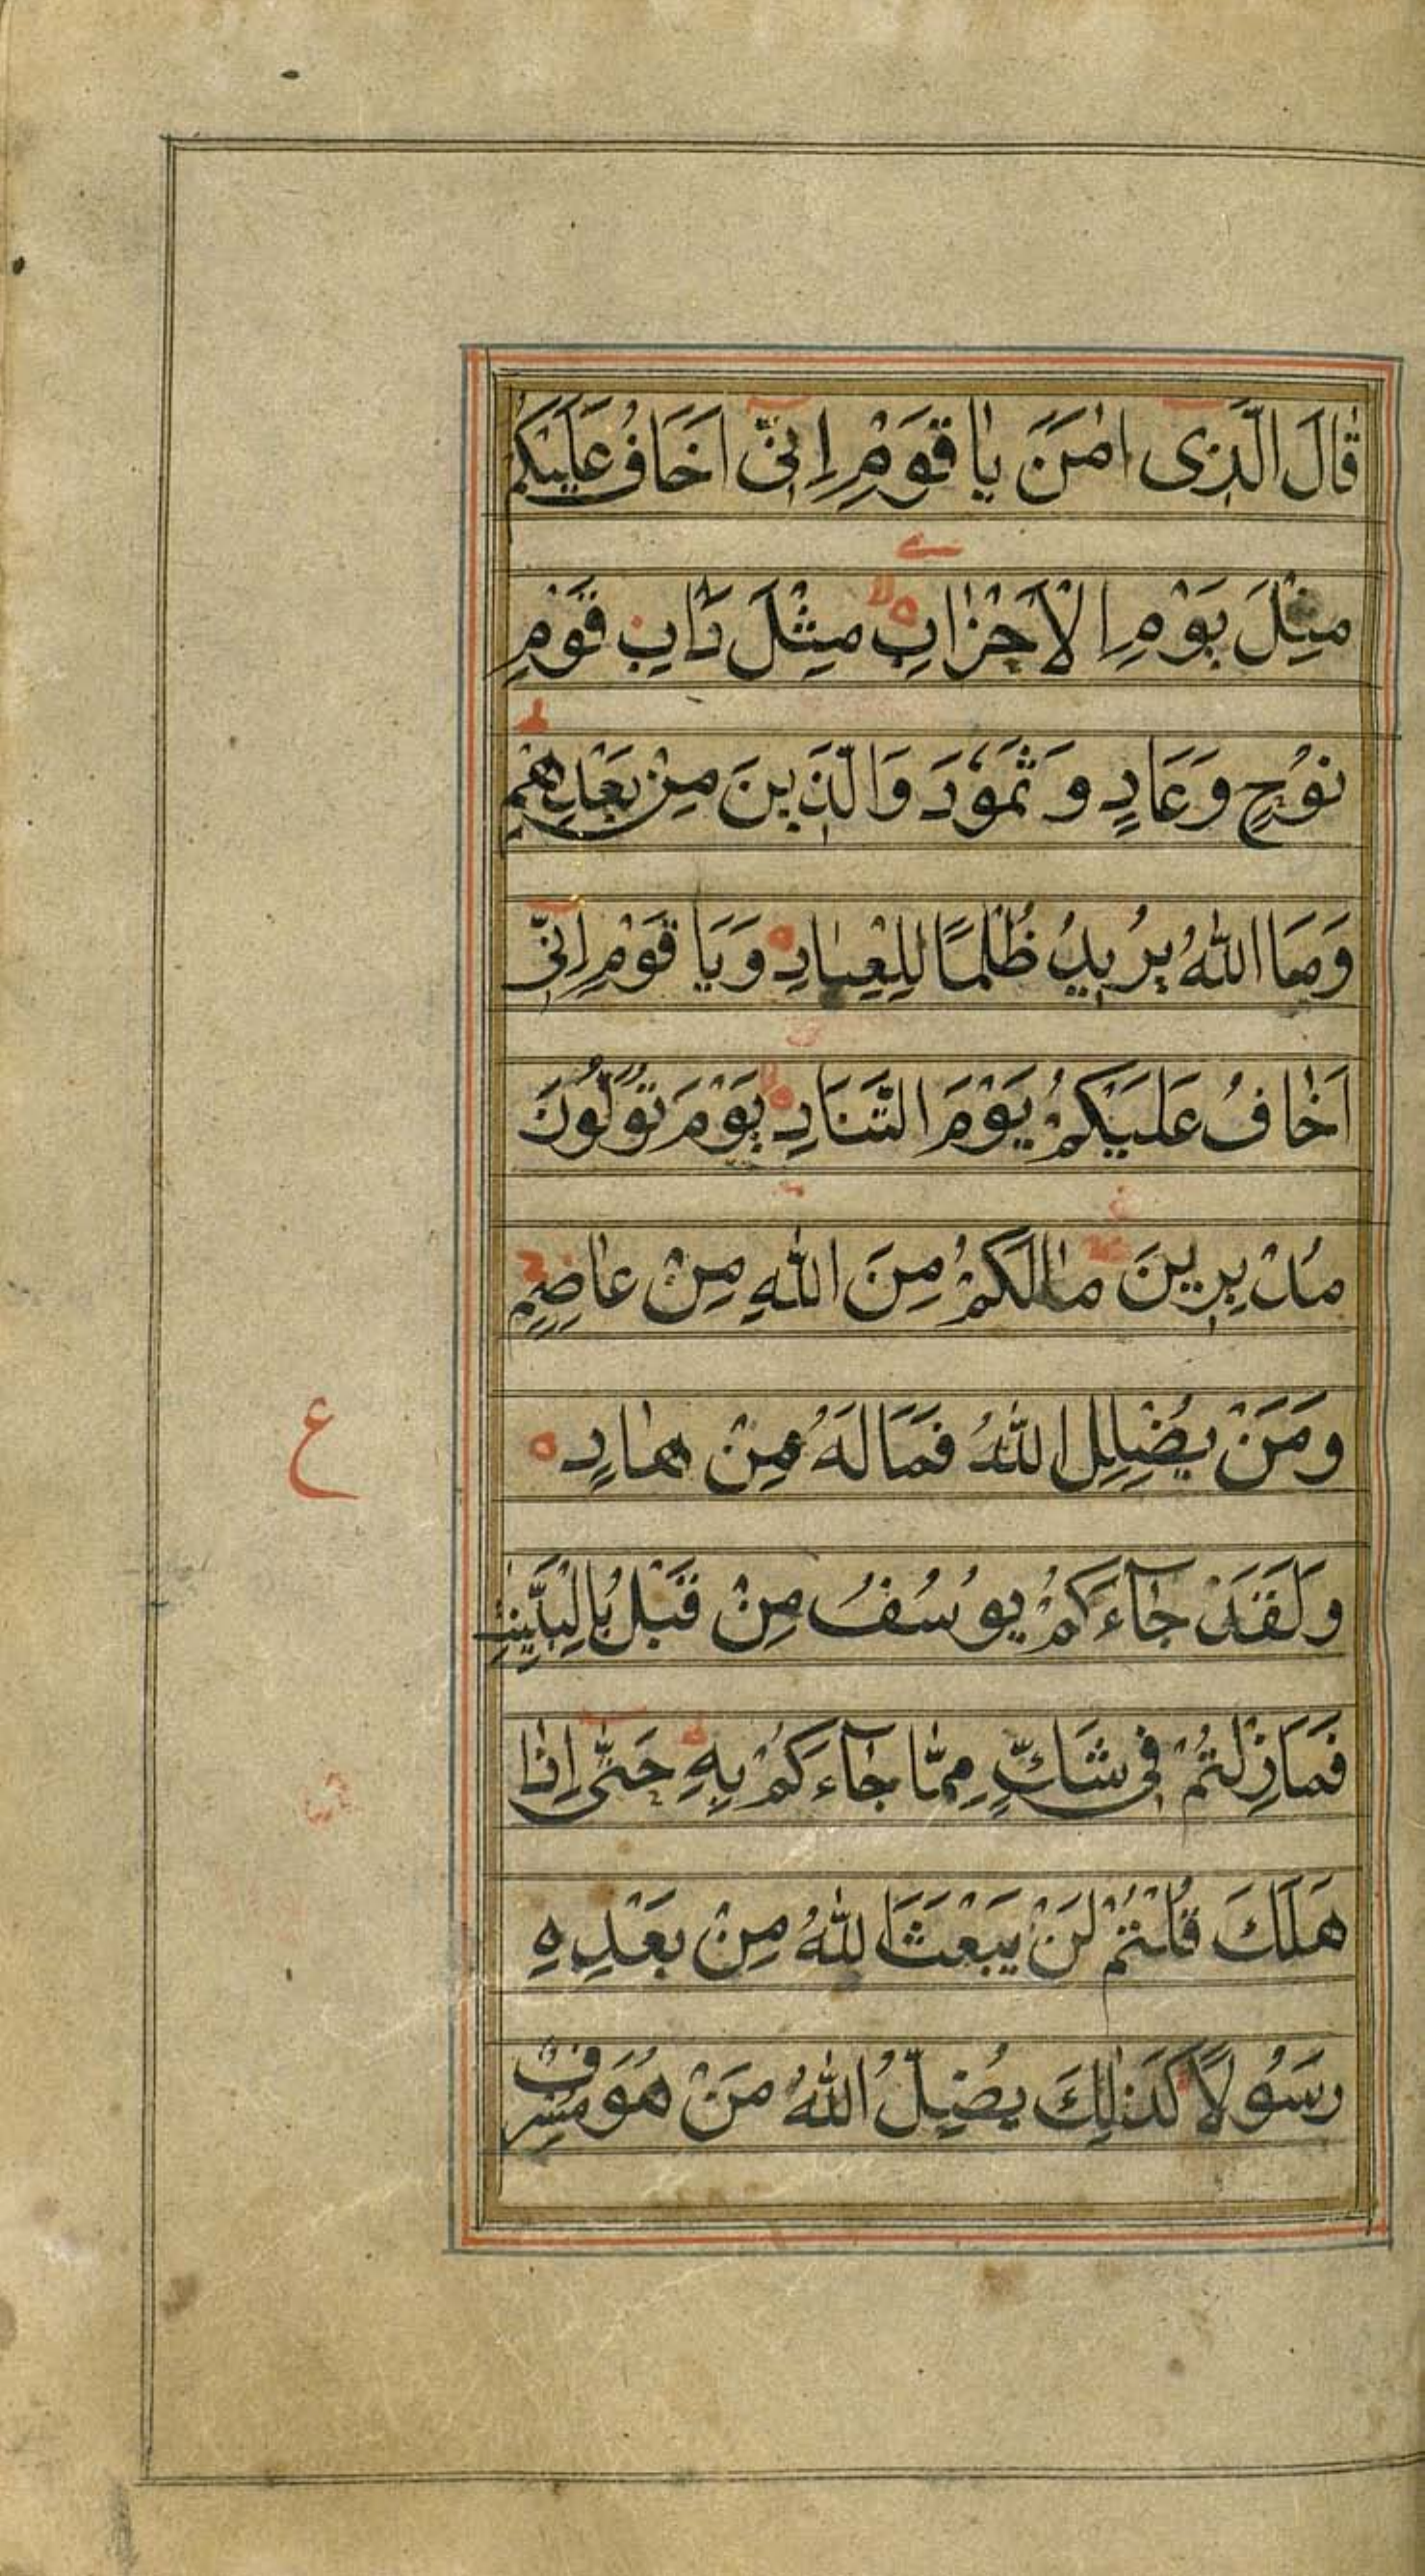 قَالَ الَّذِى اٰمَنَ يٰا قَوْمِ اِنّى اَخَافُ عَلَيْكُمْ
مِثْلَ يَوْمِ الْاَحْزٰابِ مِثْلَ دَابِ قَوْمِ
نُوْحٍ وَعَادٍ وَثَمُوْدَ وَالَّذِينَ مِنْ بَعْدِهِمْ
وَمَا اللّٰهُ يُرِيدُ ظُلْمًا لِلْعِبٰادِ وَيَا قَوْمِ اِنّى
اَخٰافُ عَلَيْكُمْ يَوْمَ التَّنَادِ يَوْمَ تُوَلُّونَ
مُدْبِرِينَ مٰالَكُمْ مِنَ اللّٰهِ مِنْ عٰاصِمٍ
وَمَنْ يُضْلِلِ اللّٰهُ فَمَا لَهُ مِنْ هٰادٍ
ع
وَلَقَدْ جٰٓاءَكُمْ يُوسُفُ مِنْ قَبْلُ بِالْبَيِّنٰتِ
فَمَازِلْتُمْ فى شَكٍّ مِمّٰا جٰٓاءَكُمْ بِهِ حَتّٰى اِذٰا
هَلَكَ قُلْتُمْ لَنْ يَبْعَثَ اللّٰهُ مِنْ بَعْدِهِ
رَسُولًا كَذٰلِكَ يُضِلُّ اللّٰهُ مَنْ هُوَ مُسْرِفٌ